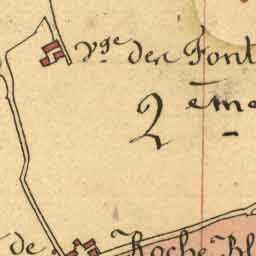 Vge der Font
2ème
de Roche Bl